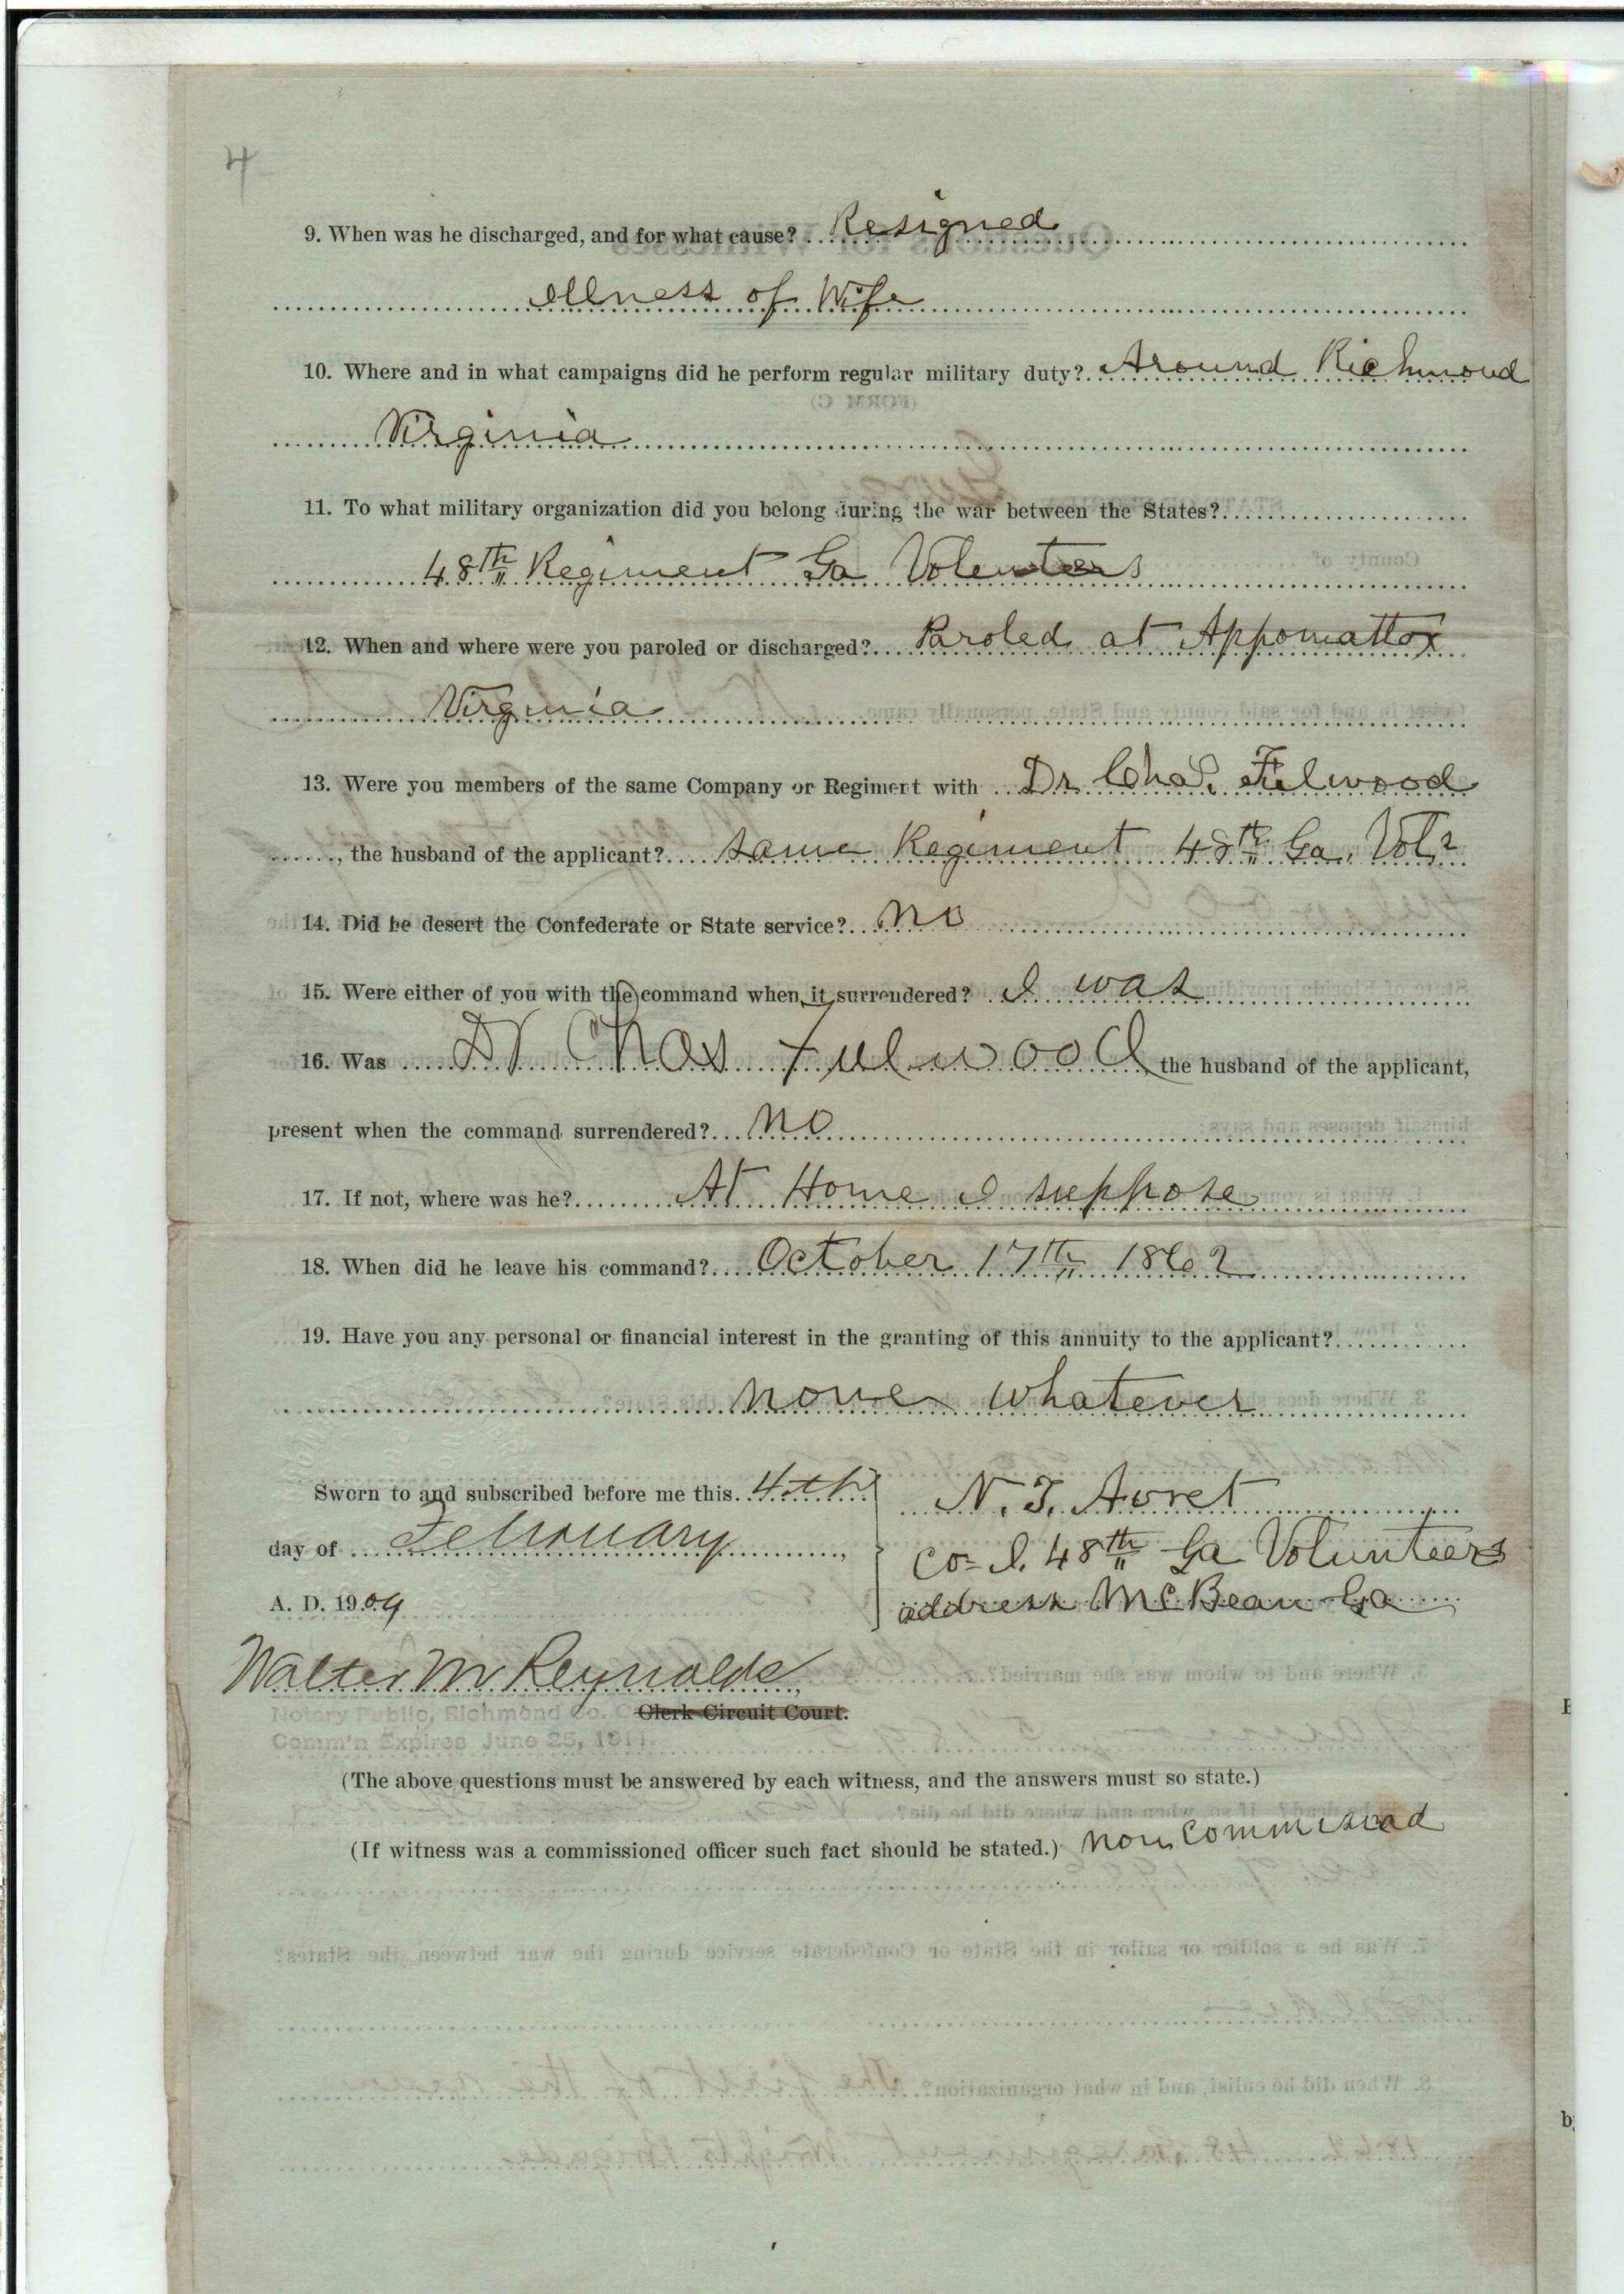 4
9. When was he discharged, and for what cause? Resigned
Illness of Wife
10. Where and in what campaigns did he perform regular military duty? Around Richmond
Virginia
11. To what military organization did you belong during the war between the States?
48th Regiment Ga Volunteers
12. When and where were you paroled or discharged? Paroled at Appomattox
Virginia
13. Were you members of the same Company or Regiment with Dr Chas. Fulwood
, the husband of the applicant? Same Regiment 48th Ga. Vols
14. Did he desert the Confederate or State service? No
15. Were either of you with the command when it surrendered? I was
16. Was Dr Chas Fulwood the husband of the applicant,
present when the command surrendered? No
17. If not, where was he? At Home I suppose
18. When did he leave his command? October 17th 1862
19. Have you any personal or financial interest in the granting of this annuity to the applicant?
None whatever
Sworn to and subscribed before me this 4th
day of February,
A. D. 1909
N. J. Avret
Co- I. 48th Ga Volunteers
address McBean Ga
Walter M Reynolds,
Clerk Circuit Court.
Notary Public, Richmond Co.
Comm'n Expires June 25, 1911.
(The above questions must be answered by each witness, and the answers must so state.)
(If witness was a commissioned officer such fact should be stated.) non